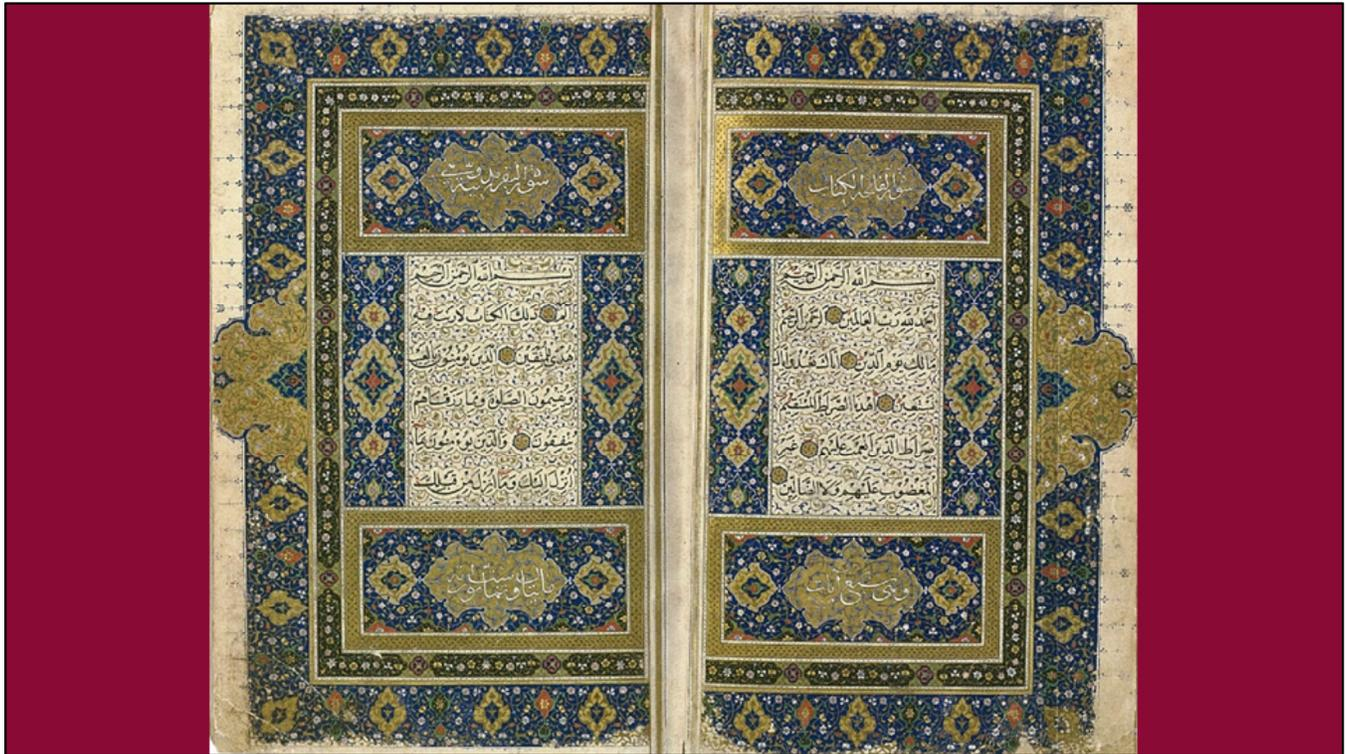 سورة الفاتحة الكتاب
بسم الله الرحمن الرحيم
الحمد لله رب العالمين الرحمن الرحيم
مالك يوم الدين اياك نعبد واياك
نستعين اهدنا الصراط المستقيم
صراط الذين انعمت عليهم غير
المغضوب عليهم ولا الضالين
وهي سبع آيات
سورة البقرة
بسم الله الرحمن الرحيم
الم ذلك الكتاب لا ريب فيه
هدى للمتقين الذين يؤمنون بالغيب
ويقيمون الصلوة ومما رزقناهم
ينفقون والذين يؤمنون بما
انزل اليك وما انزل من قبلك
مائتان وست وثمانون آية